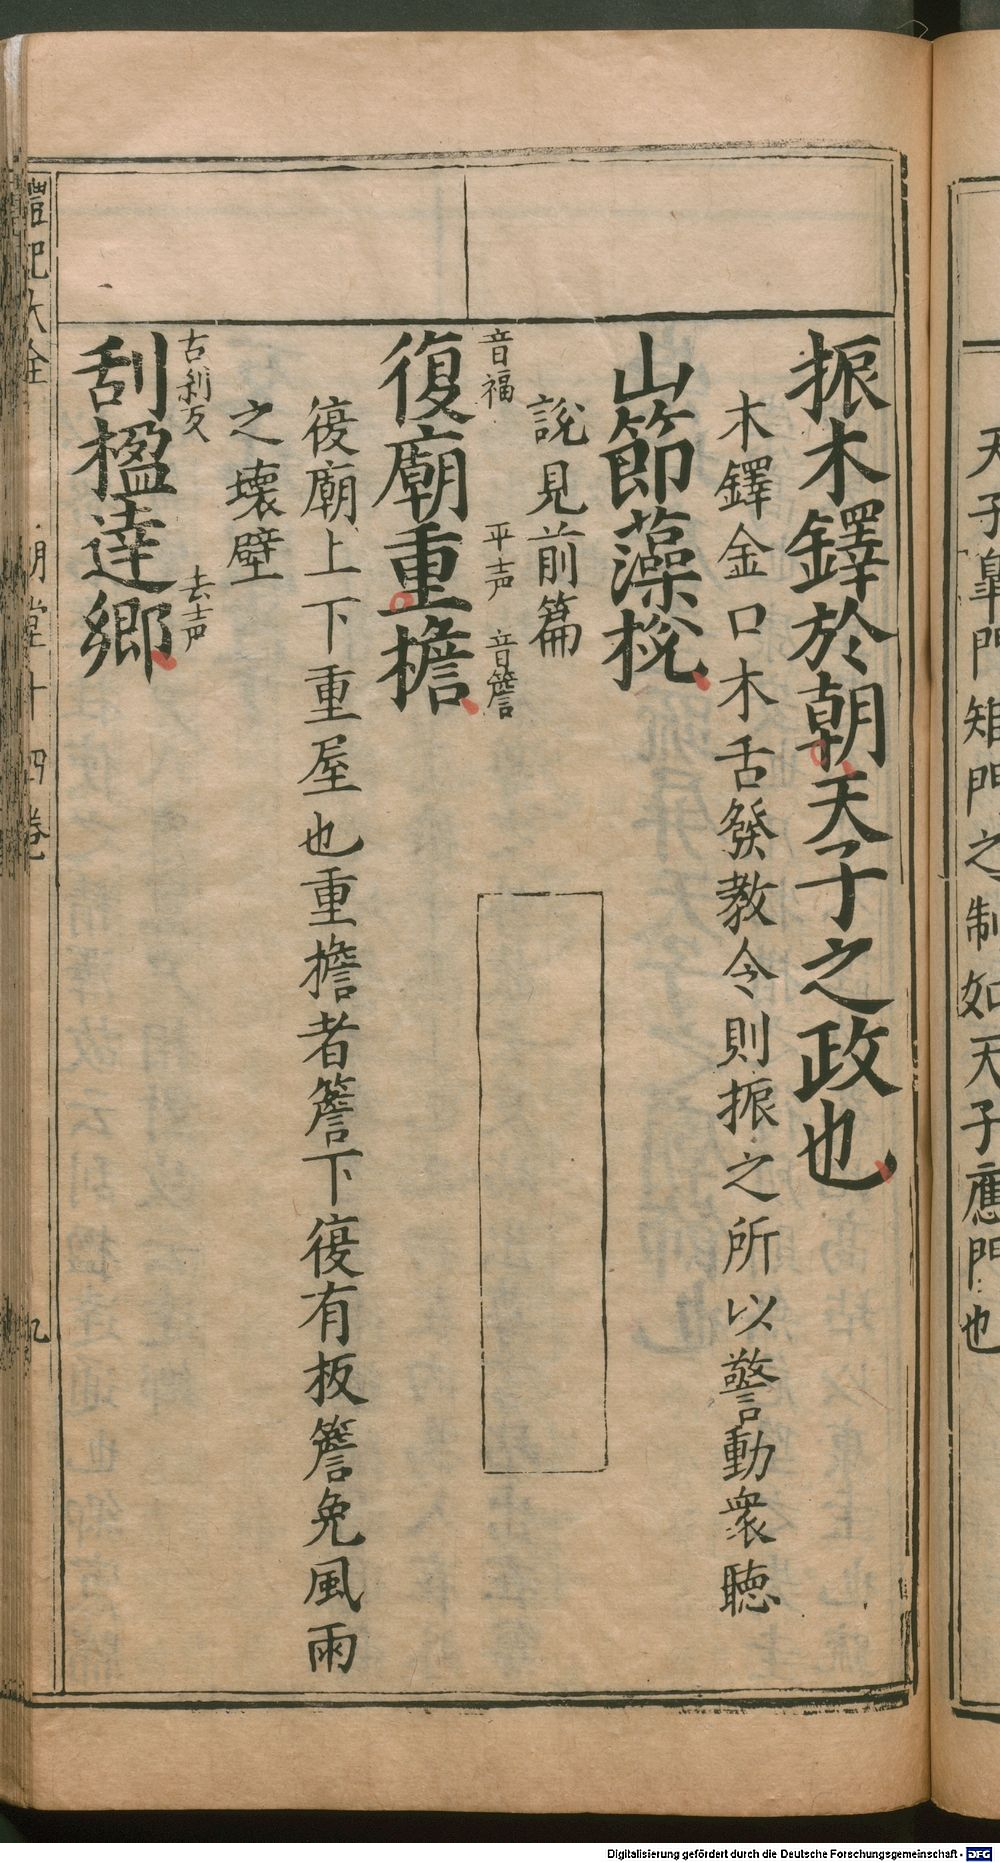 天子皐門雉門之制如天子應門也
振木鐸於朝天子之政也
木鐸金口木舌發教令則振之所以警動衆聴
山節藻梲
説見前篇
音福 平声 音簷
復廟重檐
復廟上下重屋也重擔者簷下復有板簷免風雨
之壊壁
古刹反 去声
刮楹達鄉
禮記大全 明堂十四卷 九
Digitalisierung gefördert durch die Deutsche Forschungsgemeinschaft - DFG